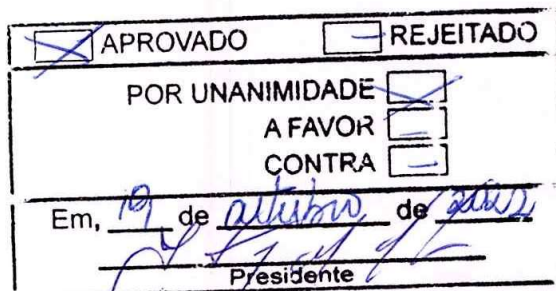 APROVADO REJEITADO
POR UNANIMIDADE
A FAVOR
CONTRA
Em, 19 de outubro de 2022
Presidente